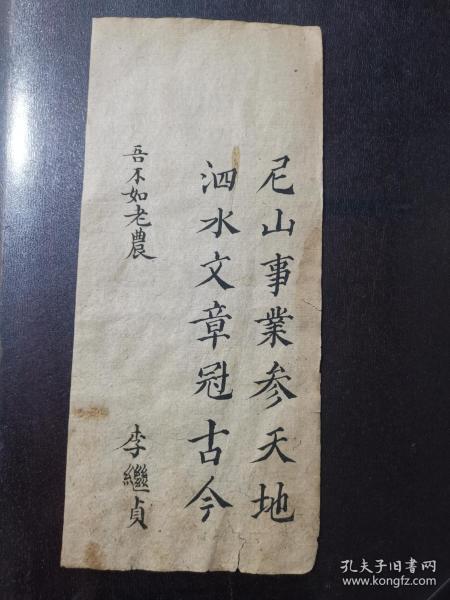 尼山事業参天地
泗水文章冠古今
吾不如老農
李繼貞
孔夫子旧书网
www.kongfz.com